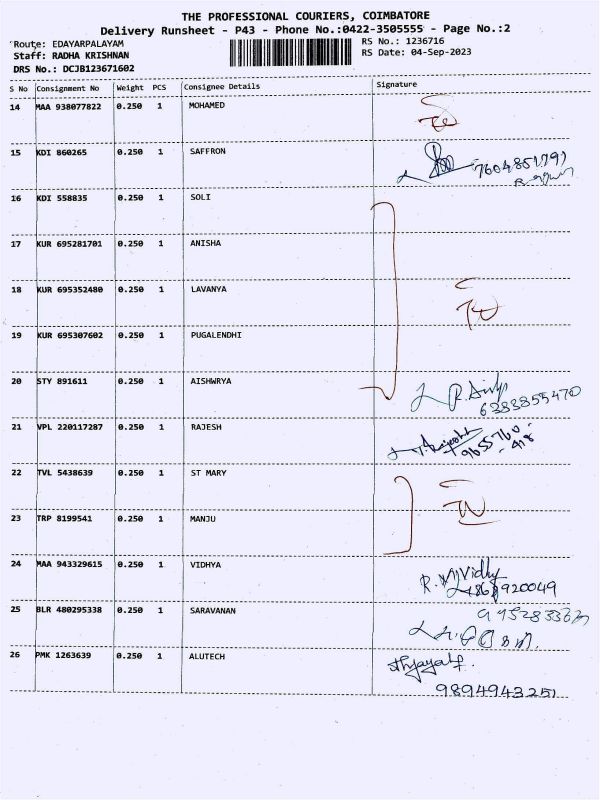 THE PROFESSIONAL COURIERS, COIMBATORE
Delivery Runsheet - P43 - Phone No.:0422-3505555 - Page No.:2
Route: EDAYARPALAYAM
Staff: RADHA KRISHNAN
DRS No.: DCJB123671602
RS No.: 1236716
RS Date: 04-Sep-2023
S No Consignment No Weight PCS Consignee Details Signature
14 MAA 938077822 0.250 1 MOHAMED
15 KDI 860265 0.250 1 SAFFRON 7604851791
16 KDI 558835 0.250 1 SOLI
17 KUR 695281701 0.250 1 ANISHA
18 KUR 695352480 0.250 1 LAVANYA
19 KUR 695307602 0.250 1 PUGALENDHI
20 STY 891611 0.250 1 AISHWRYA
6383855470
21 VPL 220117287 0.250 1 RAJESH
9655760
418
22 TVL 5438639 0.250 1 ST MARY
23 TRP 8199541 0.250 1 MANJU
24 MAA 943329615 0.250 1 VIDHYA
25 BLR 480295338 0.250 1 SARAVANAN
26 PMK 1263639 0.250 1 ALUTECH
9894943251